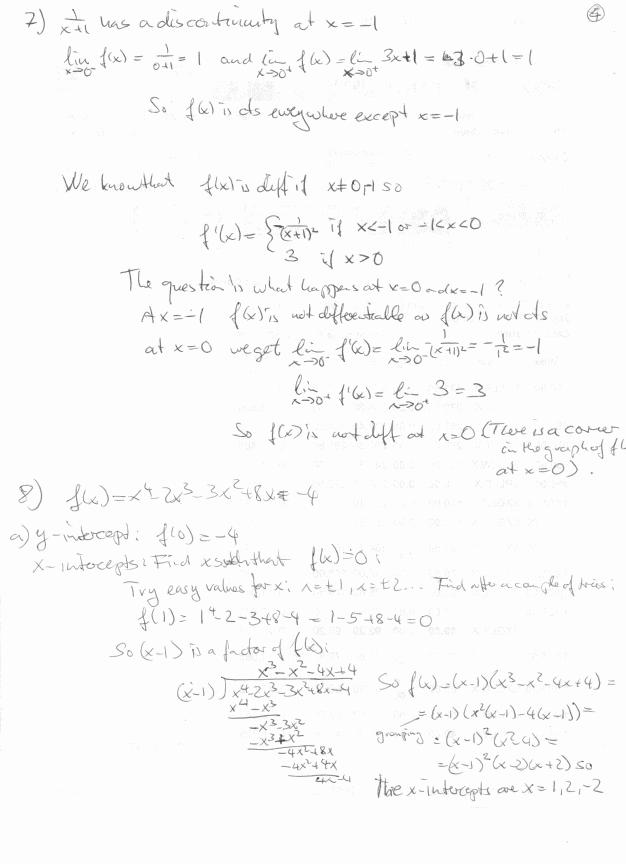 ④
7) 1/(x+1) has a discontinuity at x = -1
lim x→0⁻ f(x) = 1/(0+1) = 1 and lim x→0⁺ f(x) = lim x→0⁺ 3x+1 = 3·0+1 = 1
So f(x) is cts everywhere except x = -1
We know that f(x) is diff if x≠0,-1 so
f'(x) = { -1/(x+1)² if x<-1 or -1<x<0
3 if x>0
The question is what happens at x=0 and x=-1 ?
At x=-1 f(x) is not differentiable as f(x) is not cts
at x=0 we get lim x→0⁻ f'(x) = lim x→0⁻ -1/(x+1)² = -1/1² = -1
lim x→0⁺ f'(x) = lim x→0⁺ 3 = 3
So f(x) is not diff at x=0 (There is a corner
in the graph of f(
at x=0).
8) f(x) = x⁴-2x³-3x²+8x-4
a) y-intercept: f(0) = -4
x-intercepts: Find x such that f(x)=0:
Try easy values for x: x=±1, x=±2... Find after a couple of tries:
f(1) = 1⁴-2-3+8-4 = 1-5+8-4 = 0
So (x-1) is a factor of f(x):
x³-x²-4x+4
(x-1) ) x⁴-2x³-3x²+8x-4
x⁴-x³
-x³-3x²
-x³+x²
-4x²+8x
-4x²+4x
4x-4
So f(x) = (x-1)(x³-x²-4x+4) =
= (x-1)(x²(x-1)-4(x-1)) =
grouping = (x-1)²(x²-4) =
= (x-1)²(x-2)(x+2) so
The x-intercepts are x = 1, 2, -2